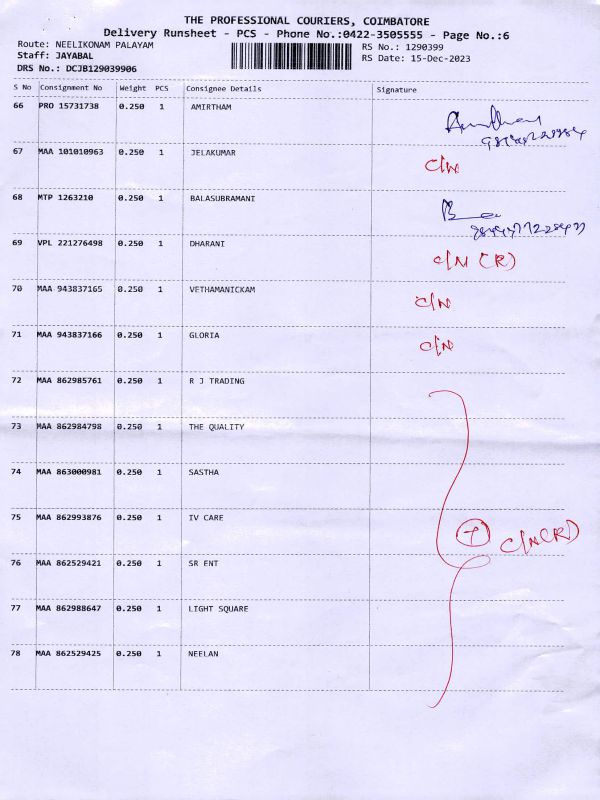 THE PROFESSIONAL COURIERS, COIMBATORE
Delivery Runsheet - PCS - Phone No.:0422-3505555 - Page No.:6
Route: NEELIKONAM PALAYAM
Staff: JAYABAL
DRS No.: DCJB129039906
RS No.: 1290399
RS Date: 15-Dec-2023
S No Consignment No Weight PCS Consignee Details Signature
66 PRO 15731738 0.250 1 AMIRTHAM
67 MAA 101010963 0.250 1 JELAKUMAR C/N
68 MTP 1263210 0.250 1 BALASUBRAMANI
69 VPL 221276498 0.250 1 DHARANI C/N (R)
70 MAA 943837165 0.250 1 VETHAMANICKAM C/N
71 MAA 943837166 0.250 1 GLORIA C/N
72 MAA 862985761 0.250 1 R J TRADING
73 MAA 862984798 0.250 1 THE QUALITY
74 MAA 863000981 0.250 1 SASTHA
75 MAA 862993876 0.250 1 IV CARE
C/N(R)
76 MAA 862529421 0.250 1 SR ENT
77 MAA 862988647 0.250 1 LIGHT SQUARE
78 MAA 862529425 0.250 1 NEELAN